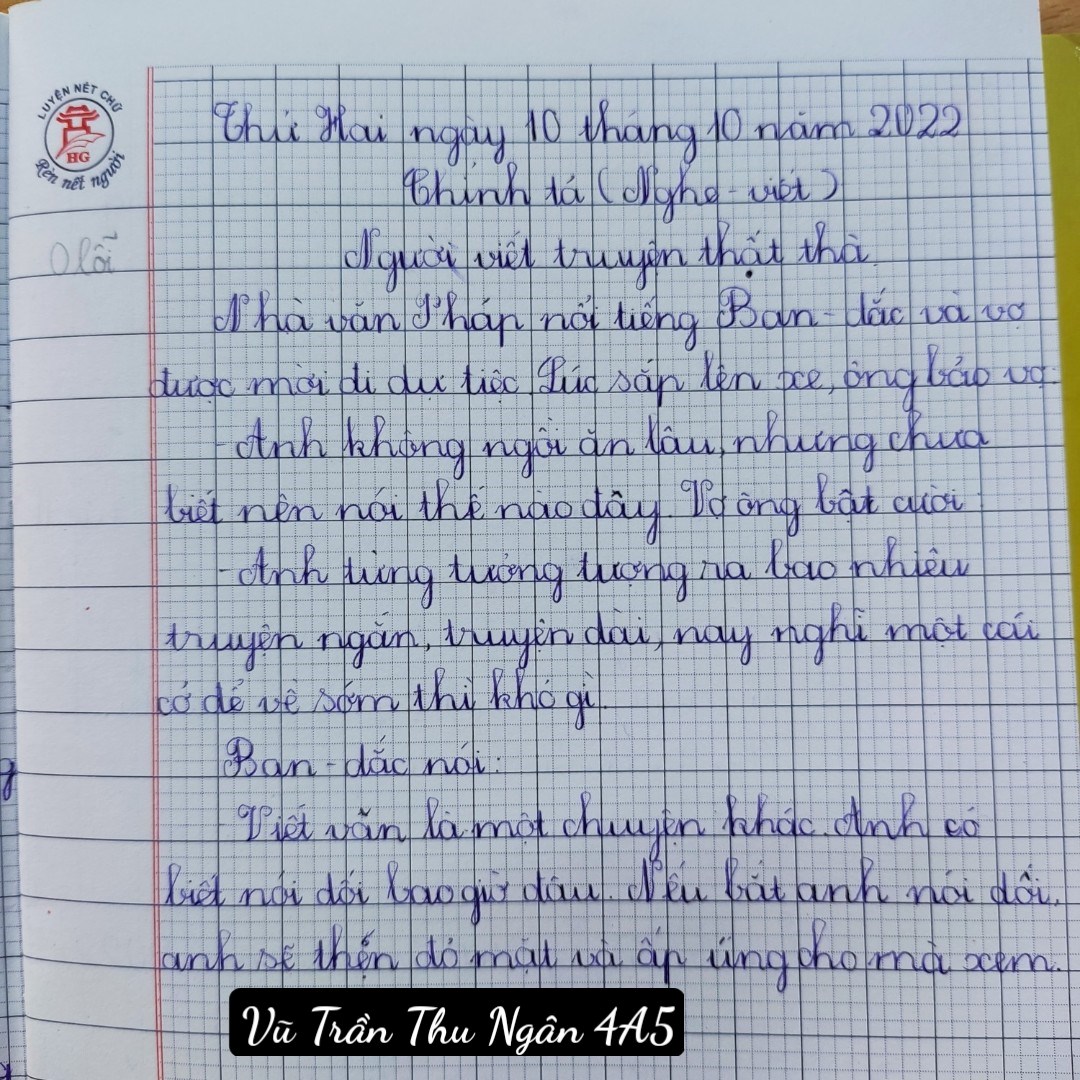 LUYỆN NÉT CHỮ
HG
Rèn nết người
Thứ Hai ngày 10 tháng 10 năm 2022
Chính tả (Nghe - viết)
0 lỗi
Người viết truyện thật thà
Nhà văn Pháp nổi tiếng Ban-dắc và vợ
được mời đi dự tiệc. Lúc sắp lên xe, ông bảo vợ:
- Anh không ngồi ăn lâu, nhưng chưa
biết nên nói thế nào đây. Vợ ông bật cười:
- Anh từng tưởng tượng ra bao nhiêu
truyện ngắn, truyện dài, nay nghĩ một cái
cớ để về sớm thì khó gì.
Ban-dắc nói:
Viết văn là một chuyện khác. Anh có
biết nói dối bao giờ đâu. Nếu bắt anh nói dối,
anh sẽ thẹn đỏ mặt và ấp úng cho mà xem.
Vũ Trần Thu Ngân 4A5